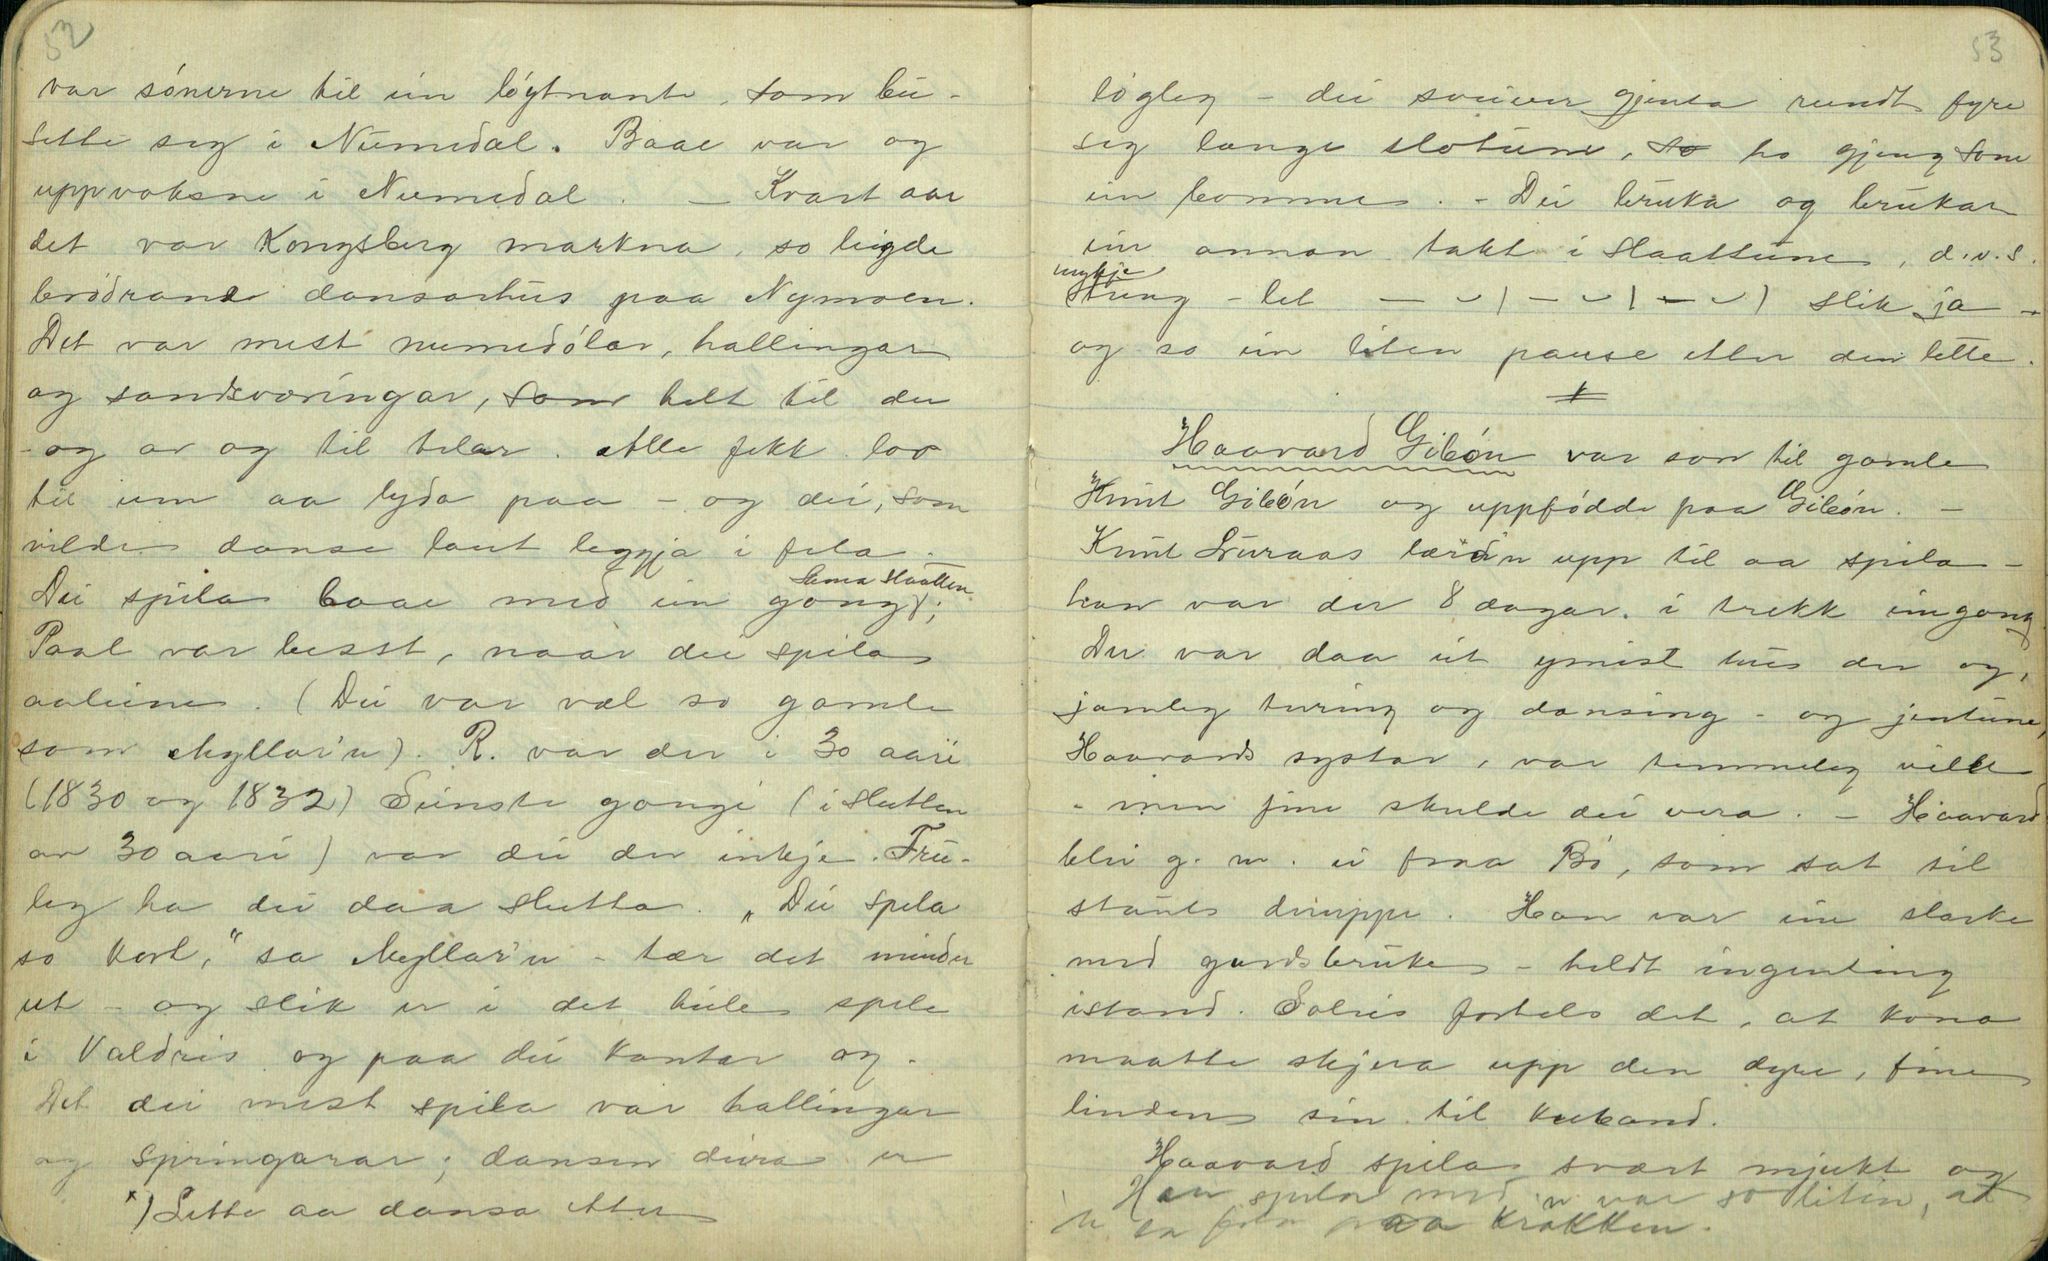 52
var sónerne til ein löytnante, som bu-
sette seg i Numedal. Baae var og
uppvaksne i Numedal. — Kvart aar
det var Kongsberg markna, so leigde
brödrane dansarhus paa Nymoen.
Det var mest numedólar, hallingar
og sandsværingar, som helt til der
- og av og til telar. Alle fekk lov
til um aa lyda paa - og dei, som
vilde danse laut leggja i fela.
sama slaatten
Dei spila baae med ein gong*);
Paal var besst, naar dei spila
aaleine. (Dei var væl so gamle
som Myllar'n). R. var der i 30 aari
(1830 og 1832) Seinste gongi (i slutten
av 30 aari) var dei der inkje. Tru-
leg ha dei daa slutta. „Dei spela
so kort," sa Myllar'n - tær det minder
ut - og slik er i det heile spele
i Valdris og paa dei kantar og.
Det dei mest spila var hallingar
og springarar; dansen deira er
*) Lette aa dansa etter
53
lógleg - dei sveiver gjenta rundt fyre
seg lange slotune, so ho gjeng som
ein komme. - Dei bruka og brukar
ein annan takt i slaattune, d.v.s.
mykje
tung - let — ⌣ | — ⌣ | — ⌣ | slik ja -
og so ein liten pause etter den lette.
Haavard Gibón var son til gamle
Knut Gibón og uppfódde paa Gibón. -
Knut Luraas lærd'n upp til aa spila -
han var der 8 dagar i trekk eingong
Der var daa eit ymist hus der og,
jamleg turing og dansing - og jentune,
Haavards systar, var temmeleg ville
- men fine skulde dei vera. - Haavard
blei g. m. ei fraa Bó, som sat til
stauts druppe. Han var ein slarke
med gardsbruke - heldt ingenting
istand. Solveis fortels det, at kona
maatte skjera upp den dyre, fine
linden sin til kuband.
Haavard spila svært mjukt og
Han spila med'n var so liten, at
'n sa fela paa krakken.